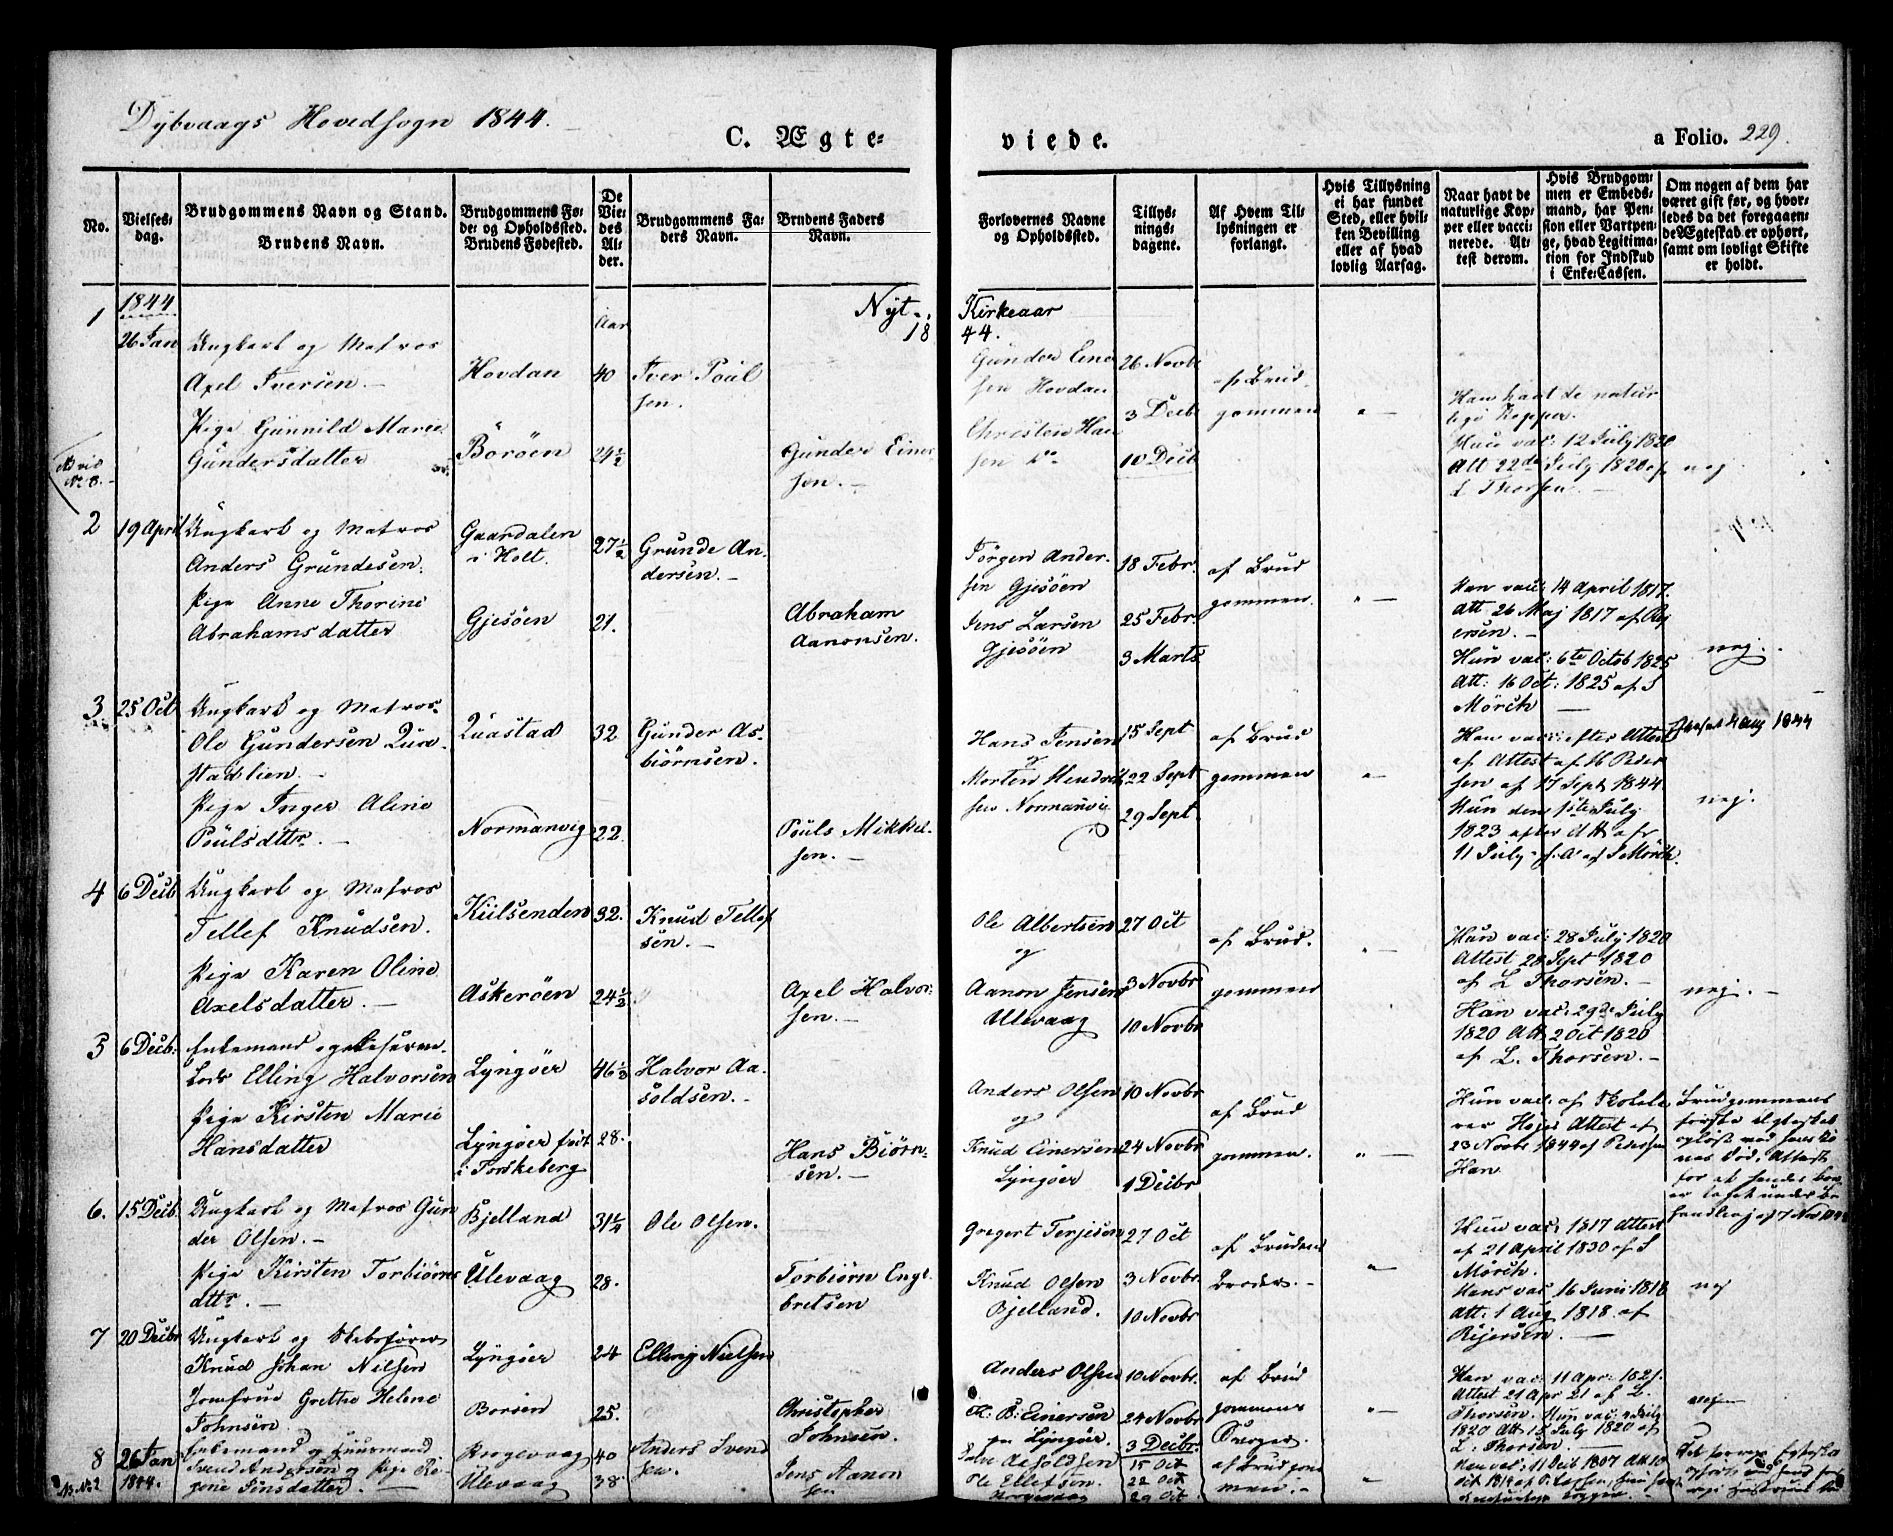 Dybvaags Hovedsogn 1844.
C. Ægte-
viede.
a Folio. 229.
No.
Vielses-
dag.
Brudgommens Navn og Stand.
Brudens Navn.
Brudgommens Fø-
de- og Opholdssted.
Brudens Fødested.
De
Vie-
des
Al-
der.
Brudgommens Fa-
ders Navn.
Brudens Faders
Navn.
Forlovernes Navne
og Opholdssted.
Tillys-
nings-
dagene.
Af Hvem Til-
lysningen er
forlangt.
Hvis Tillysning
ei har fundet
Sted, eller hvil-
ken Bevilling
eller af hvad
lovlig Aarsag.
Naar havt de
naturlige Kop-
per eller vacci-
nerede. At-
test derom.
Hvis Brudgom-
men er Embeds-
mand, har Pen-
sion eller Vartpen-
ge, hvad Legitima-
tion for Indskud
i Enke-Cassen.
Om nogen af dem har
været gift før, og hvor-
ledes da det foregaaen-
de Ægteskab er ophørt,
samt om lovligt Skifte
er holdt.
Nyt
Kirkeaar
18
44.
1
1844
26 Jan
Ungkarl og Matros
Axel Iversen.
Pige Gunnild Marie
Gundersdatter
Hovdan
Boröen
Aar
40
24½
Iver Poul
sen.
Gunder Einer
sen.
Gunder Einer
sen Hovdan
Christen Han
sen
26 Novbr
3 Decb
10 Decb
af Brud
gommen
Han havt de natur
lige Kopper.
Hun vac: 12 July 1820
Att 22de July 1820 af
L Thorsen.
nej
2
19 April
Ungkarl og Matros
Anders Grundesen.
Pige Anne Thorine
Abrahamsdatter
Gaardalen
i Holt.
Gjesöen
27½
21.
Grunde An-
dersen.
Abraham
Aanonsen.
Jörgen Ander-
sen Gjesöen
Jens Larsen
Gjesöen
18 Febr.
25 Febr.
3 Marts
af Brud
gommen.
Han vac: 14 April 1817.
Att. 26 Maj 1817 af Rej
ersen.
Hun vac: 6te Octob 1825
Att: 16 Oct: 1825 af J
Mörch
nej.
3
25 Oct
Ungkarl og Matros
Ole Gundersen Qua
stadlien.
Pige Inger Aline
Poulsdttr.
Quastad
Normanvig
32
22.
Gunder As-
biörnsen.
Pouls Mikkel-
sen.
Hans Jensen
og
Morten Hendrik
sen Normanvig
15 Sept
22 Sept
29 Sept
af Brud
gommen
Han vac: efter Attest
af Attest af H Peder
sen af 17 Sept 1844
Hun den 1ste July
1823 efter Att af
11 July s. A af J Mörch.
4 Aug 1844
nej.
4
6 Decb
Ungkarl og Matros
Tellef Knudsen.
Pige Karen Oline
Axelsdatter.
Kiilsenden
Askeröen
32.
24½
Knud Tellef
sen.
Axel Halvor
sen.
Ole Albertsen
og
Aanon Jensen
Ulevaag
27 Oct
3 Novbr
10 Novbr
af Brud.
gommen
Hun vac: 28 July 1820
Attest 28 Sept 1820
af L Thorsen.
Han vac: 29de July
1820 Att. 2 Oct 1820
af L. Thorsen.
nej.
5
6 Decb.
Enkemand
Lods Elling Halvorsen
Pige Kirsten Marie
Hansdatter
Lyngöer
Lyngöer födt
i Torskeberg
46½
28.
Halvor Aa-
soldsen.
Hans Biörn-
sen.
Anders Olsen
og
Knud Einersen
Lyngöer
10 Novbr
24 Novbr
1 Decbr
af Brud
gommen.
Hun vac: af Skolelæ
rer Højer Attest af
23 Novbr 1844 af Pedersen
Han
Brudgommens
første Ægteskab
opløst ved hans Ko
nes Död. Attest
for at hendes Boe
er taget under Be
handling af 7 Nov 1844
6.
15 Decb.
Ungkarl og Matros Gun
der Olsen.
Pige Kirsten Torbiörns
dttr.
Bjelland
Ulevaag
31¼
28.
Ole Olsen.
Torbiörn Enge
bretsen
Gregert Terjesen
Knud Olsen
Bjelland.
27 Oct
3 Novbr.
10 Novbr
af Brudens
Broder.
Hun vac: 1817 Attest
af 21 April 1830 af J
Mörch.
Hans vac: 16 Juni 1818
Att: 1 Aug 1818 af
Rejersen.
nej
7
20 Decbr
Ungkarl og Skibsförer
Knud Johan Nilsen
Jomfrue Grethe Helene
Johnsen
Lyngöer
Borsen
24
25.
Elling Nielsen
Christopher
Johnsen.
Anders Olsen
K: B: Einersen
Lyngöer.
10 Novbr.
24 Novbr
3 Decbr.
af Brud
gommens
Han vac: 11 Apr: 1821.
Attest 21 Apr 21 af L.
Thorsen. Hun vac: 4 July
1820 Att. 15 July 1820 af
L: Thorsen
nej
8
26 Jan
1844.
Enkemand og Huusmand
Svend Andersen og Pige Re
gine Jensdatter.
Krogevaag
Ulevaag
40
38
Anders Svend
sen.
Jens Aanon
sen
Aasoldsen
Ole Ellefsen.
Krogevaag
15 Oct
22 Oct
29 Oct
af Brudgom
men.